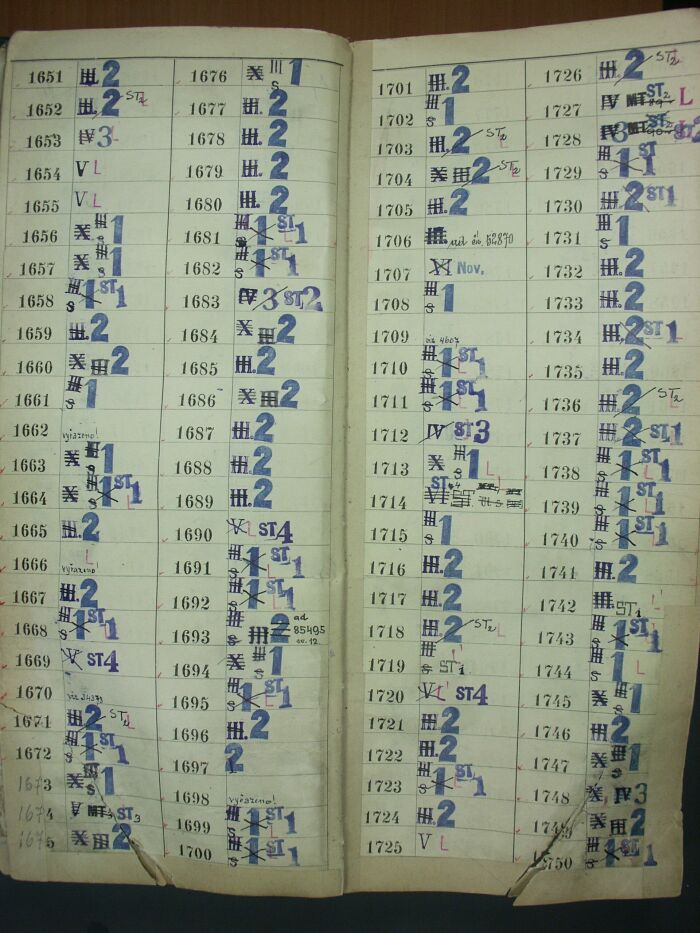 1651 III. 2
1652 III. 2 ST2
1653 IV 3 L
1654 V L
1655 V L
1656 X III 1
1657 X III 1
1658 III S 1 ST 1
1659 III. 2
1660 X III 2
1661 III S 1
1662 vyřazeno!
1663 X III 1
1664 X III S 1 ST 1
1665 III. 2
1666 L vyřazeno!
1667 III. 2
1668 III S 1 ST 1
1669 V ST4
1670
1671 III. 2 ST2
1672 III S 1 ST 1
1673 X III S 1
1674 ST3
1675 X III 2
1676 X III S 1
1677 III. 2
1678 III. 2
1679 III. 2
1680 III. 2
1681 III S 1 ST 1 L
1682 III S 1 ST 1 L
1683 IV 3 ST2
1684 X III 2
1685 III. 2
1686 X III 2
1687 III. 2
1688 III. 2
1689 III. 2
1690 V L ST4
1691 III S 1 ST 1 L
1692 III S 1 ST 1 L
1693 III. 2 ad 85495
1694 X III S 1
1695 III S 1 ST 1 L
1696 III. 2
1697 2
1698 vyřazeno!
1699 III S 1 ST 1 L
1700 III S 1 ST 1
1701 III. 2
1702 III S 1
1703 III. 2 ST2 L
1704 X III 2 ST2 L
1705 III. 2
1706 III. 52870
1707 XI Nov.
1708 III S 1
1709 viz 4607
1710 III S 1 ST 1 L
1711 III S 1 ST 1 L
1712 IV ST3
1713 X III S 1 L
1714 VI ST
1715 III S 1
1716 III. 2
1717 III. 2
1718 III. 2 ST2 L
1719 III S ST1
1720 V L ST4
1721 III. 2
1722 III. 2
1723 III S 1 ST 1 L
1724 III. 2
1725 V L
1726 III. 2 ST2 L
1727 IV ST2 L
1728 IV 3
1729 III S 1 ST 1
1730 III. 2 ST1
1731 III S 1
1732 III. 2
1733 III. 2
1734 III. 2 ST 1 L
1735 III. 2
1736 III. 2 ST2 L
1737 III. 2 ST 1
1738 III S 1 ST 1 L
1739 III S 1 ST 1 L
1740 III S 1 ST 1 L
1741 III. 2
1742 III. ST1
1743 III S 1 ST 1 L
1744 III S 1 L
1745 X III S 1
1746 III. 2
1747 X III S 1
1748 X IV 3
1749 X III 2
1750 III S 1 ST 1